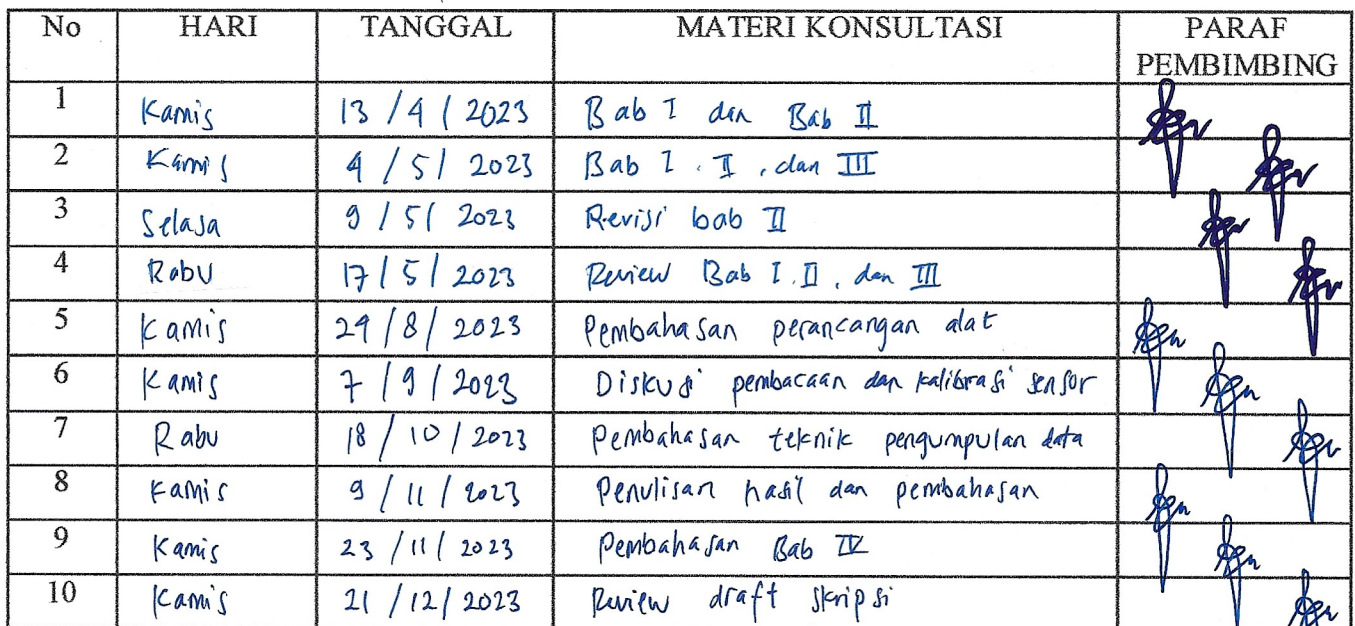 No HARI TANGGAL MATERI KONSULTASI PARAF PEMBIMBING
1 Kamis 13/4/2023 Bab I dan Bab II
2 Kamis 4/5/2023 Bab I, II, dan III
3 Selasa 9/5/2023 Revisi bab II
4 Rabu 17/5/2023 Review Bab I, II, dan III
5 Kamis 24/8/2023 Pembahasan perancangan alat
6 Kamis 7/9/2023 Diskusi pembacaan dan kalibrasi sensor
7 Rabu 18/10/2023 Pembahasan teknik pengumpulan data
8 Kamis 9/11/2023 Penulisan hasil dan pembahasan
9 Kamis 23/11/2023 Pembahasan Bab IV
10 Kamis 21/12/2023 Review draft skripsi